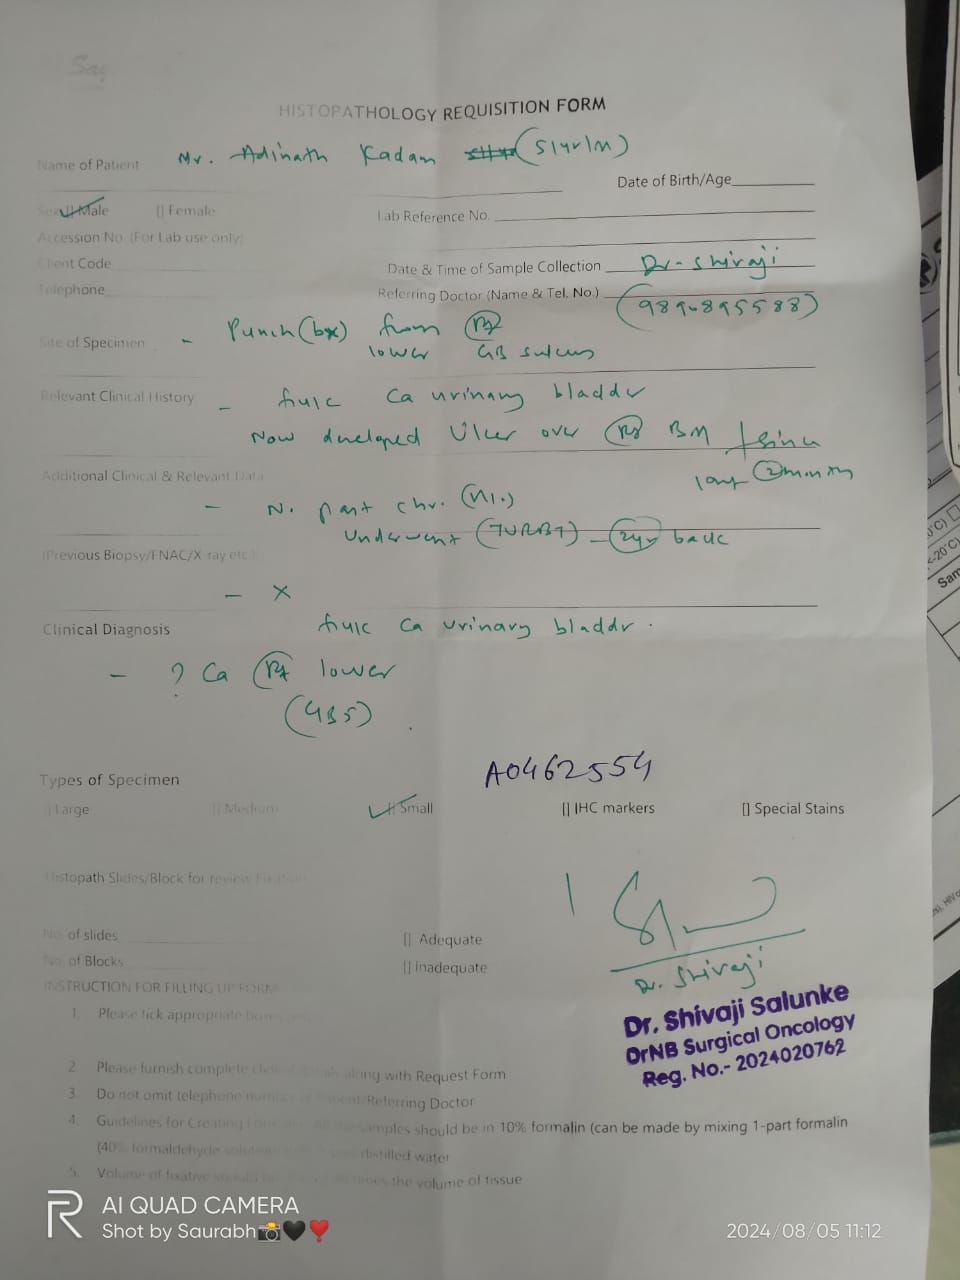 HISTOPATHOLOGY REQUISITION FORM
Name of Patient Mr. Adinath Kadam (51yr/m)
Date of Birth/Age
Sex || Male || Female
Lab Reference No.
Accession No. (For Lab use only)
Client Code
Date & Time of Sample Collection
Dr. Shivaji
Telephone
Referring Doctor (Name & Tel. No.)
(9890895588)
Site of Specimen - Punch (bx) from Rt
lower GB sulcus
Relevant Clinical History - Ca urinary bladder
Now developed Ulcer over Rt BM since
last 2 month
Additional Clinical & Relevant Data
- N. past chr. (N1.)
Underwent (TURBT) - 2yr back
(Previous Biopsy/FNAC/X-ray etc.)
- X
Clinical Diagnosis Ca urinary bladdr.
- ? Ca Rt lower
(GBS)
A0462554
Types of Specimen
|| Large || Medium || Small || IHC markers [] Special Stains
Histopath Slides/Block for review
No. of slides || Adequate
No. of Blocks || Inadequate
Dr. Shivaji
INSTRUCTION FOR FILLING UP FORM
Dr. Shivaji Salunke
DrNB Surgical Oncology
Reg. No.- 2024020762
1. Please tick appropriate
2. Please furnish complete along with Request Form
3. Do not omit telephone number Referring Doctor
4. Guidelines for samples should be in 10% formalin (can be made by mixing 1-part formalin
(40% formaldehyde distilled water
5. Volume of fixative the volume of tissue
AI QUAD CAMERA
Shot by Saurabh📸🖤❣️
2024/08/05 11:12